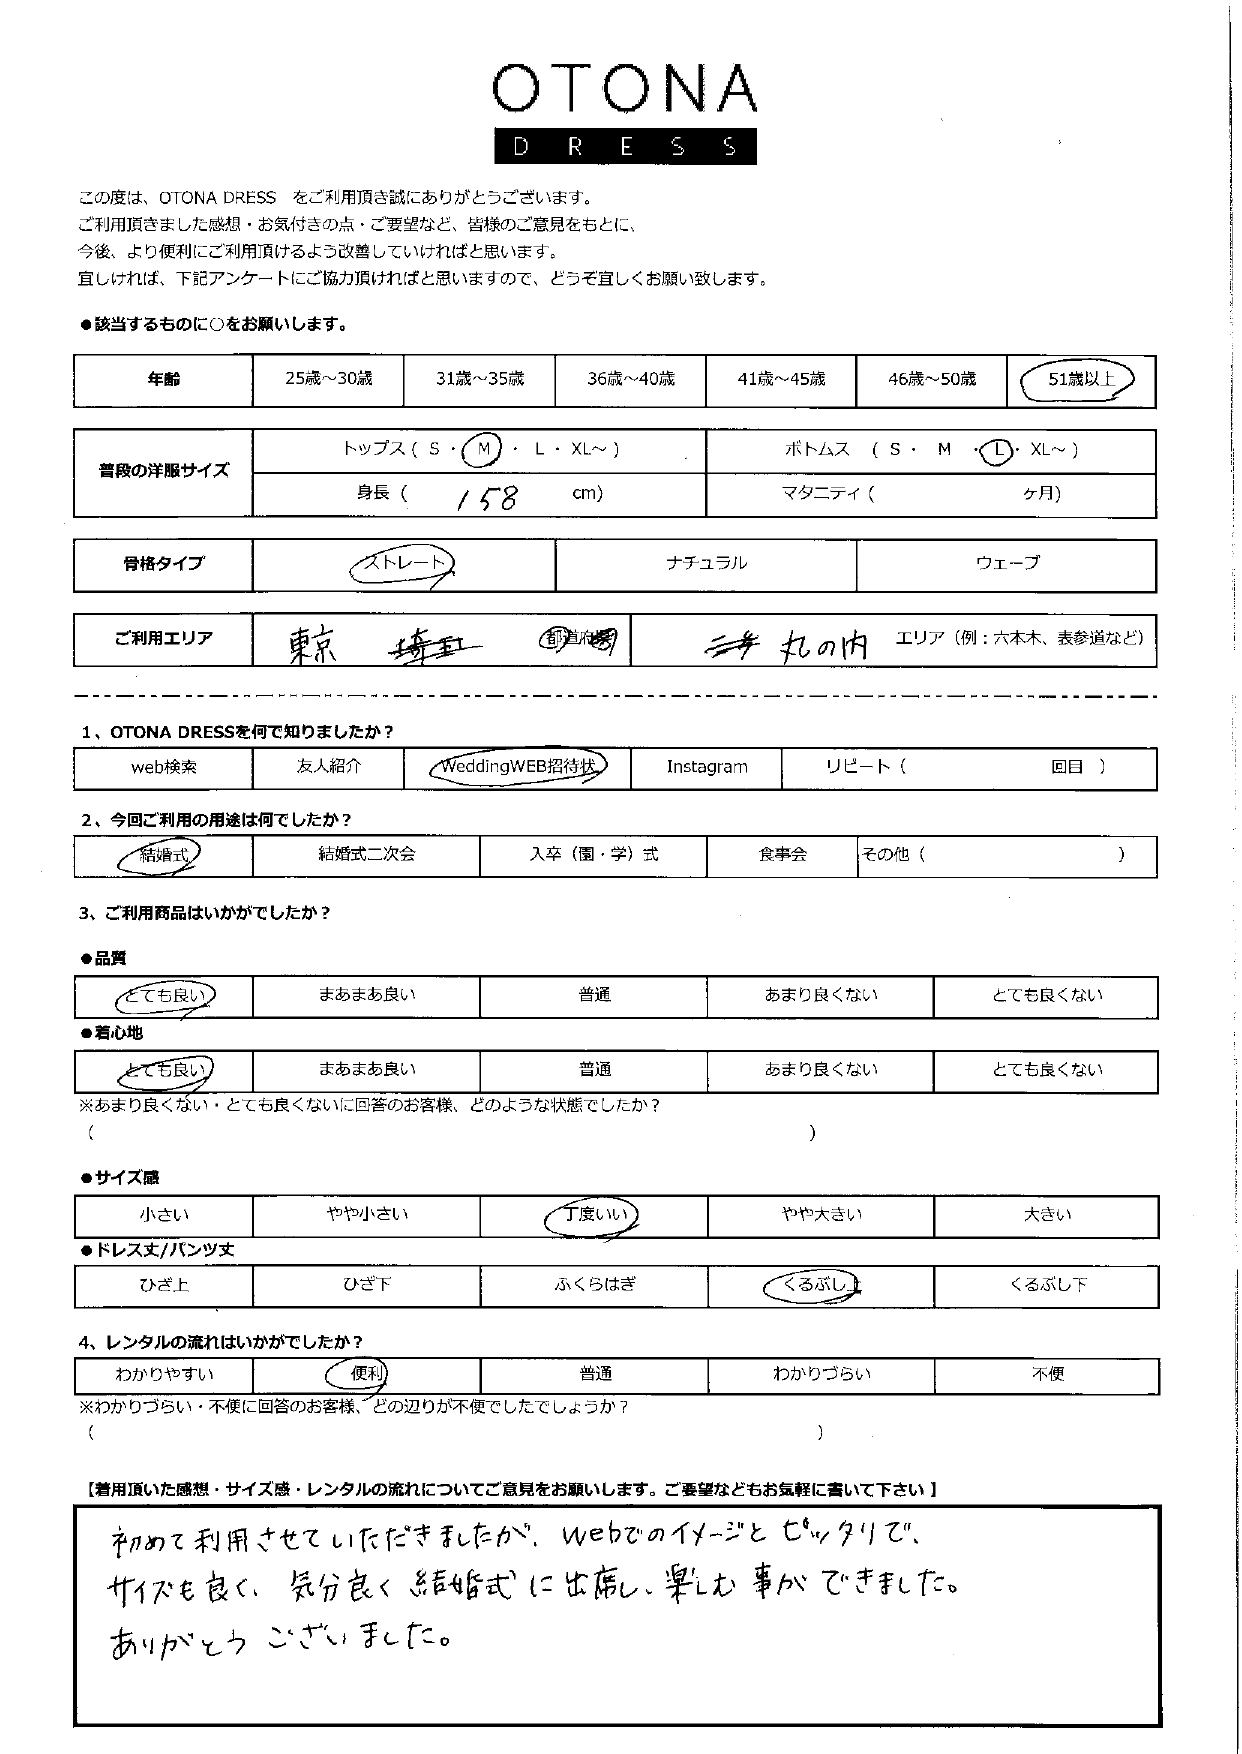 OTONA
DRESS
この度は、OTONA DRESS　をご利用頂き誠にありがとうございます。
ご利用頂きました感想・お気付きの点・ご要望など、皆様のご意見をもとに、
今後、より便利にご利用頂けるよう改善していければと思います。
宜しければ、下記アンケートにご協力頂ければと思いますので、どうぞ宜しくお願い致します。
●該当するものに○をお願いします。
年齢 25歳～30歳 31歳～35歳 36歳～40歳 41歳～45歳 46歳～50歳 51歳以上
普段の洋服サイズ トップス ( S ・ M ・ L ・ XL～ ) ボトムス ( S ・ M ・ L ・ XL～ )
身長 ( 158 cm) マタニティ ( ケ月)
骨格タイプ ストレート ナチュラル ウェーブ
ご利用エリア 東京 埼玉 都道府県 丸の内 エリア（例：六本木、表参道など）
1、OTONA DRESSを何で知りましたか？
web検索 友人紹介 WeddingWEB招待状 Instagram リピート（ 回目 ）
2、今回ご利用の用途は何でしたか？
結婚式 結婚式二次会 入卒（園・学）式 食事会 その他（ ）
3、ご利用商品はいかがでしたか？
●品質
とても良い まあまあ良い 普通 あまり良くない とても良くない
●着心地
とても良い まあまあ良い 普通 あまり良くない とても良くない
※あまり良くない・とても良くないに回答のお客様、どのような状態でしたか？
( )
●サイズ感
小さい やや小さい 丁度いい やや大きい 大きい
●ドレス丈/パンツ丈
ひざ上 ひざ下 ふくらはぎ くるぶし上 くるぶし下
4、レンタルの流れはいかがでしたか？
わかりやすい 便利 普通 わかりづらい 不便
※わかりづらい・不便に回答のお客様、どの辺りが不便でしたでしょうか？
( )
【着用頂いた感想・サイズ感・レンタルの流れについてご意見をお願いします。ご要望などもお気軽に書いて下さい 】
初めて利用させていただきましたが、webでのイメージとピッタリで、
サイズも良く、気分良く結婚式に出席し、楽しむ事ができました。
ありがとうございました。